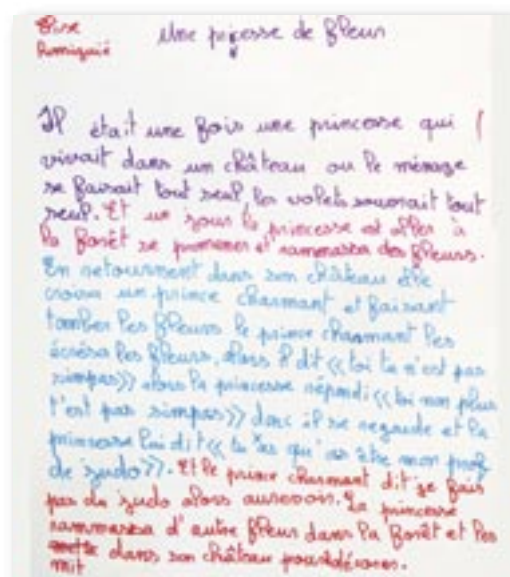 Une picesse de fleur
Il était une fois une princesse qui
vivait dans un château ou le ménage
se faisait tout seul, les volets tout
seul. Et un jour la princesse est aller à
la forêt se promener et rammassa des fleurs.
En retournent dans son château elle
croisa un prince charmant et faisant
tomber les fleurs le prince charmant les
écrésa les fleurs. Alors il dt «toi tu n'est pas
simpas» alors la princesse répondi «toi non plus
t'est pas simpas» donc il se regarde et la
princesse lui dit « tu as qu'as être mon prof
de judo». Et le prince charmant dit je fais
pas de judo alors aurevoir. La princesse
rammassa d'autre fleur dans la forêt et les
dans son château pour décorer.
mit